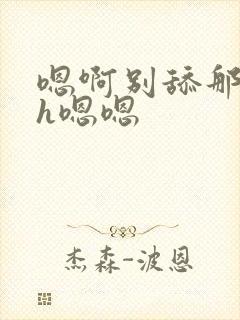 嗯啊别舔那
h嗯嗯
杰森-波恩